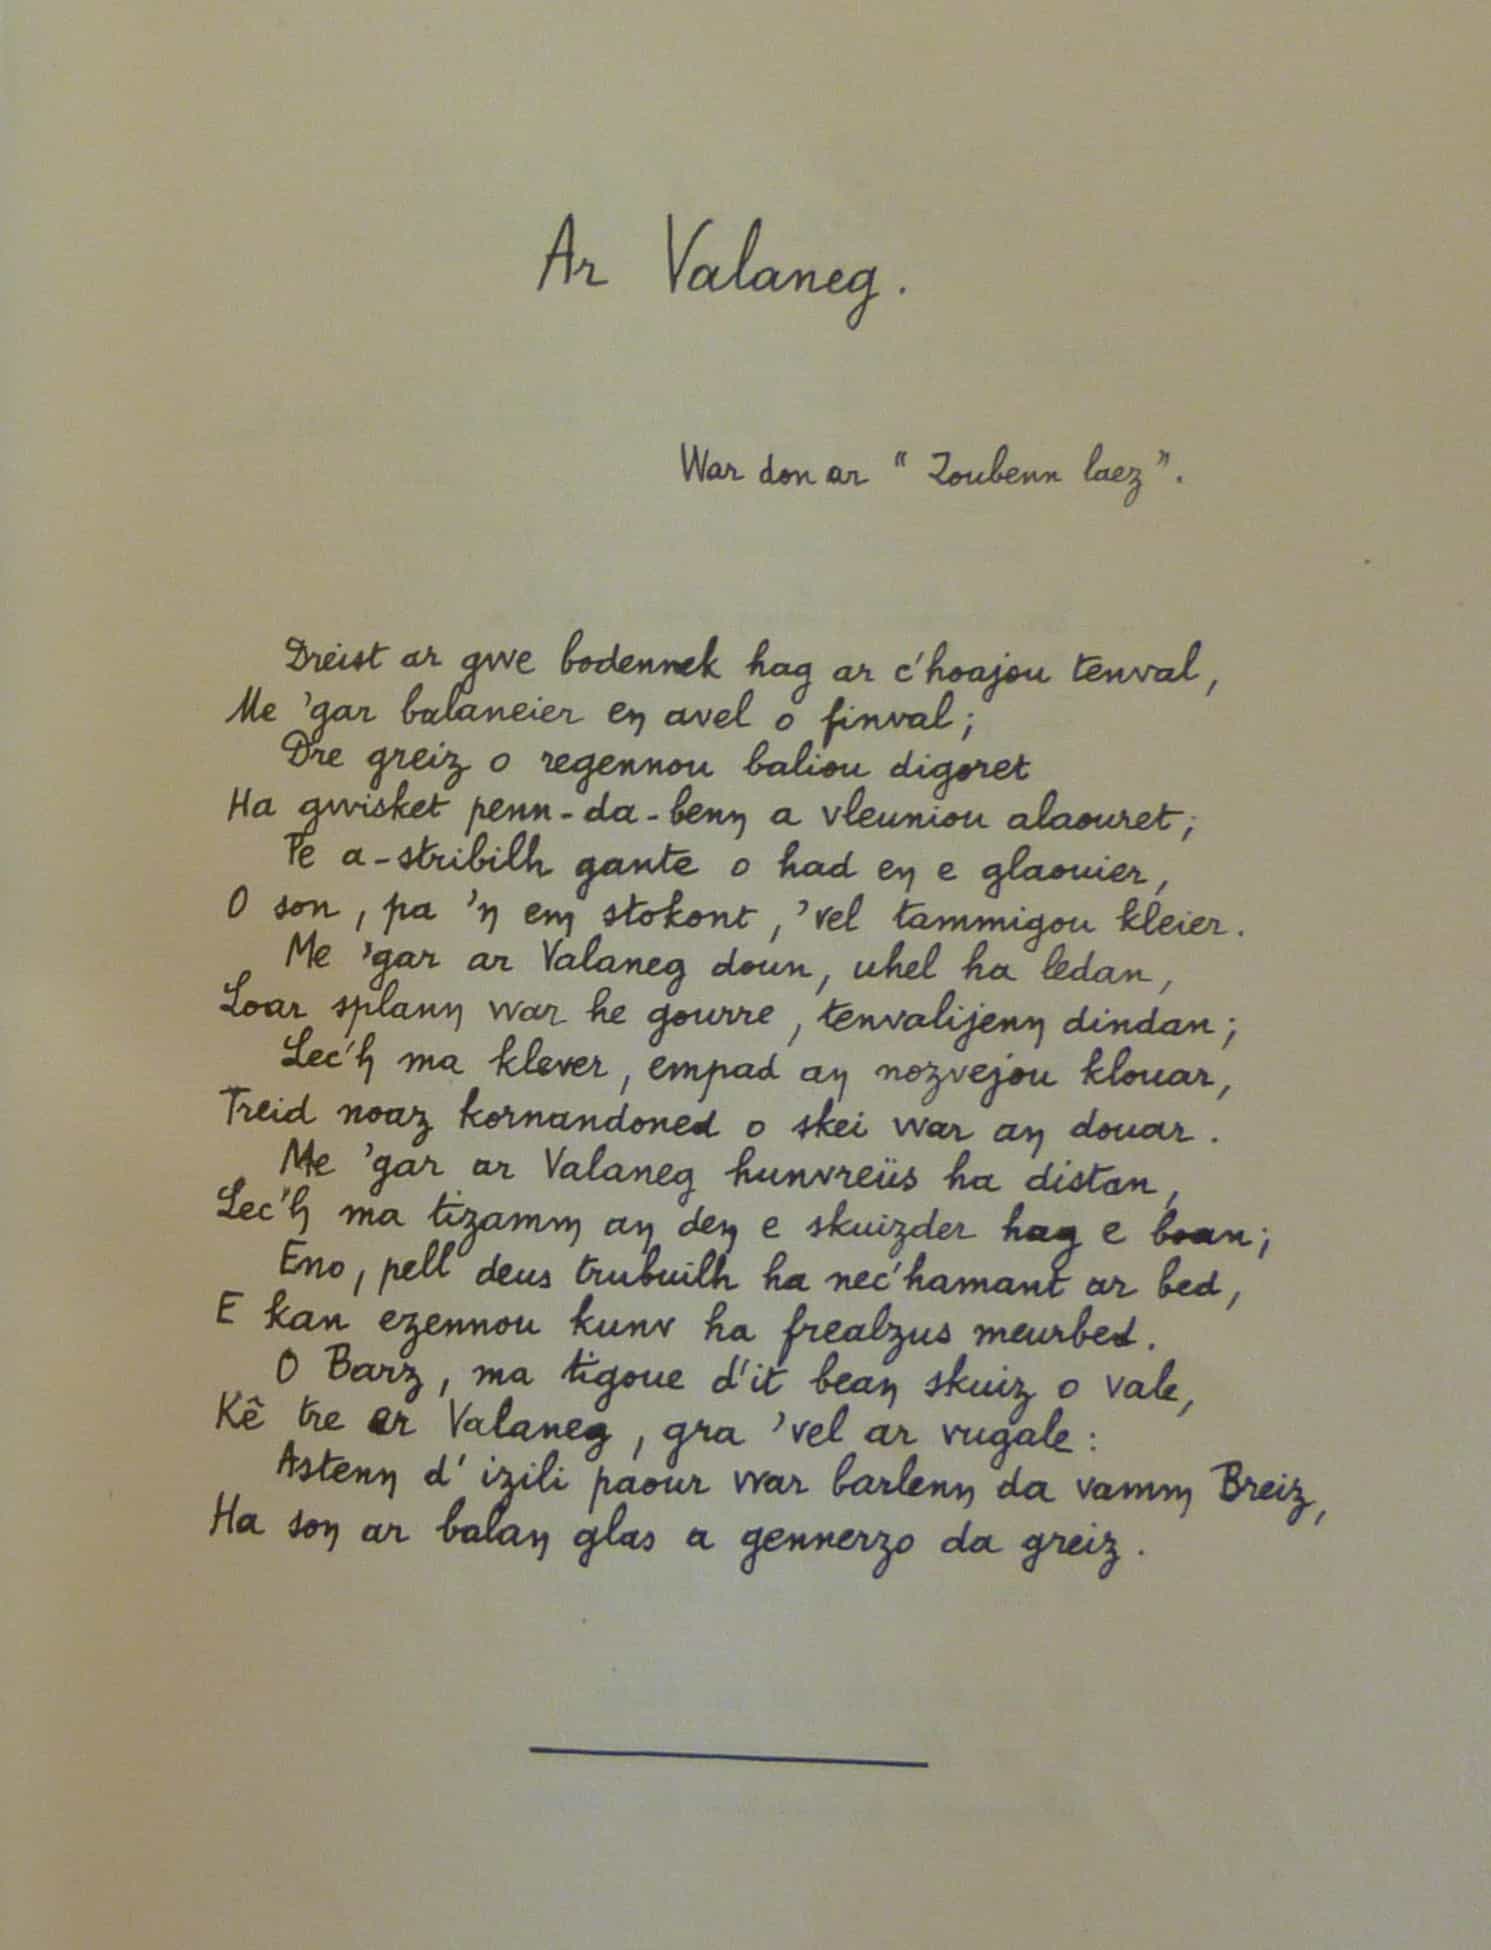 Ar Valaneg.
War don ar "Zoubenn laez".
Dreist ar gwe bodennek hag ar c'hoajou tenval,
Me 'gar balaneier eŋ avel o finval;
Dre greiz o regennou baliou digoret
Ha gwisket penn-da-benŋ a vleuniou alaouret;
Pe a-stribilh gante o had eŋ e glaouier,
O son, pa 'ŋ em stokont, 'vel tammigou kleier.
Me 'gar ar Valaneg doun, uhel ha ledan,
Loar splanŋ war he gourre, tenvalijenŋ dindan;
Lec'h ma klever, empad aŋ nozvejou klouar,
Treid noaz kornandoned o skei war aŋ douar.
Me 'gar ar Valaneg hunvreüs ha distan,
Lec'h ma tizamm aŋ deŋ e skuizder hag e boan;
Eno, pell deus trubuilh ha nec'hamant ar bed,
E kan ezennou kunv ha frealzus meurbed.
O Barz, ma tigoue d'it beaŋ skuiz o vale,
Kê tre ar Valaneg, gra 'vel ar vugale:
Astenŋ d' izili paour war barlenŋ da vamm Breiz,
Ha soŋ ar balaŋ glas a gennerzo da greiz.